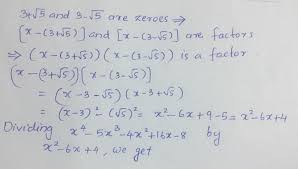 3+√5 and 3-√5 are zeroes ⇒
[x-(3+√5)] and [x-(3-√5)] are factors
⇒ (x-(3+√5)) (x-(3-√5)) is a factor
(x-(3+√5)) (x-(3-√5))
= (x-3-√5) (x-3+√5)
= (x-3)² - (√5)² = x²-6x+9-5 = x²-6x+4
Dividing x⁴-5x³-4x²+16x-8 by
x²-6x+4, we get